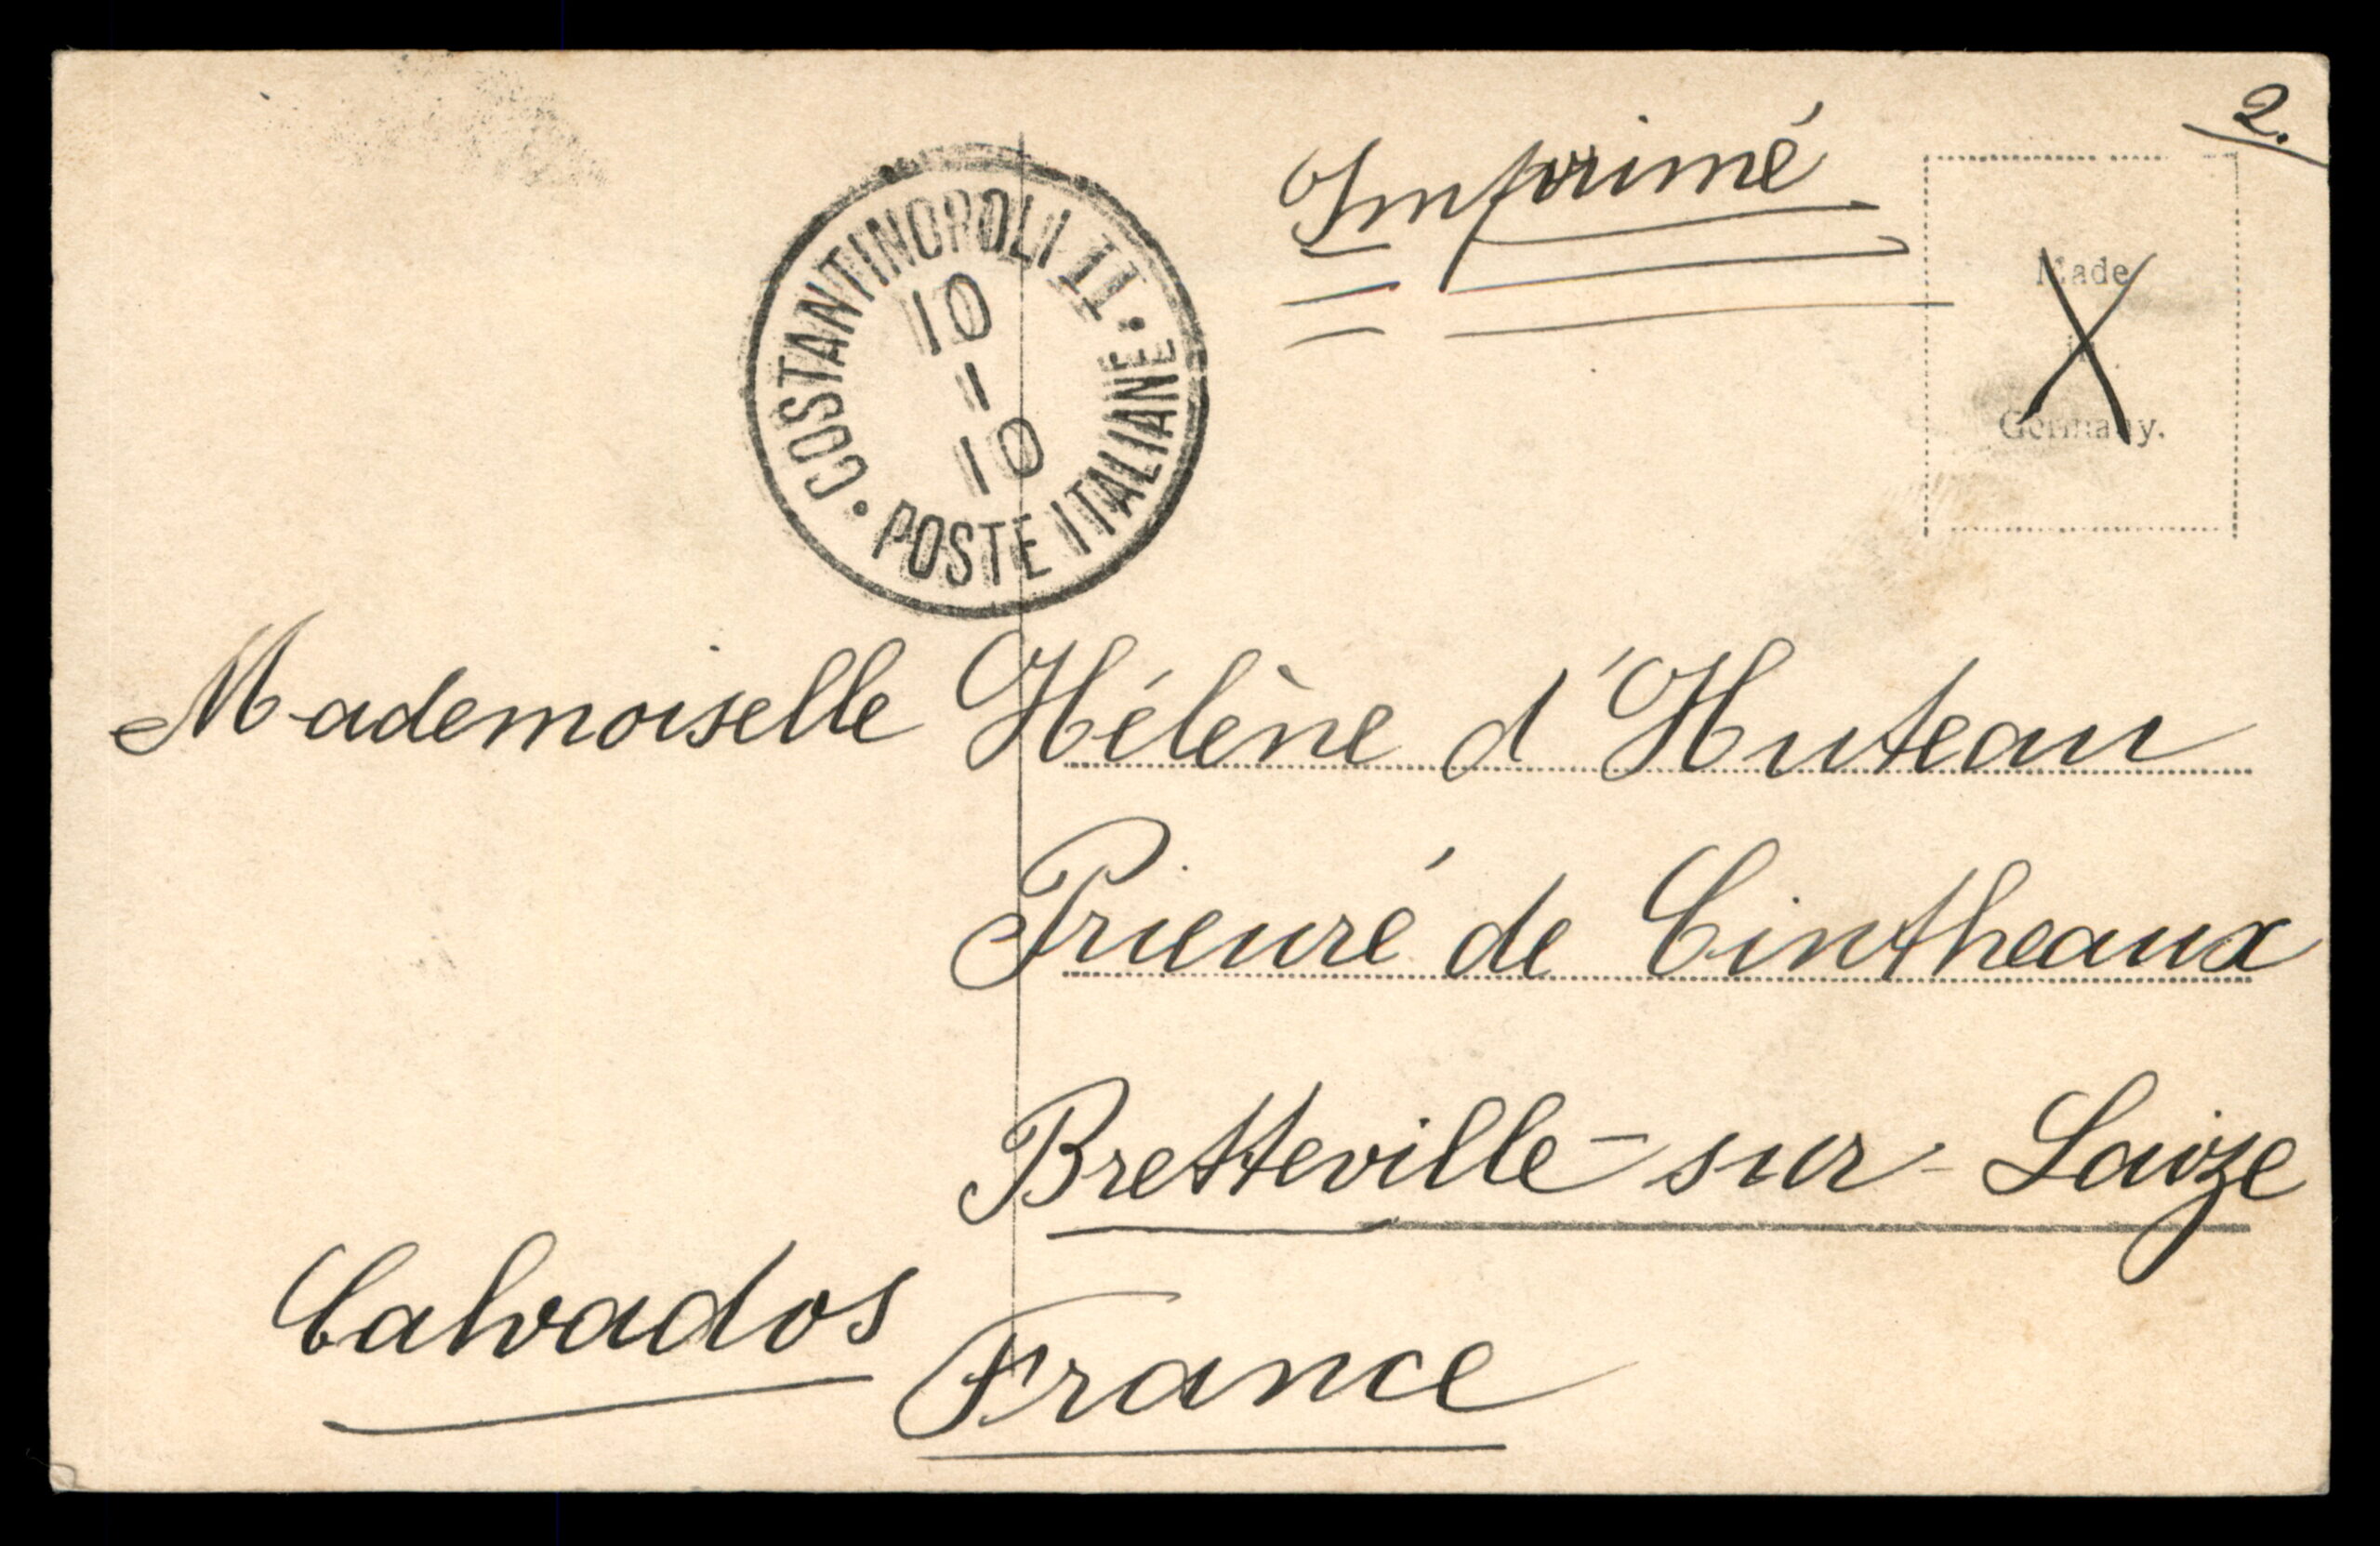 2.
Imprimé
Made
in
Germany.
COSTANTINOPOLI II
10
1
10
POSTE ITALIANE
Mademoiselle Hélène d'Huteau
Prieuré de Cintheaux
Bretteville-sur-Laize
Calvados
France